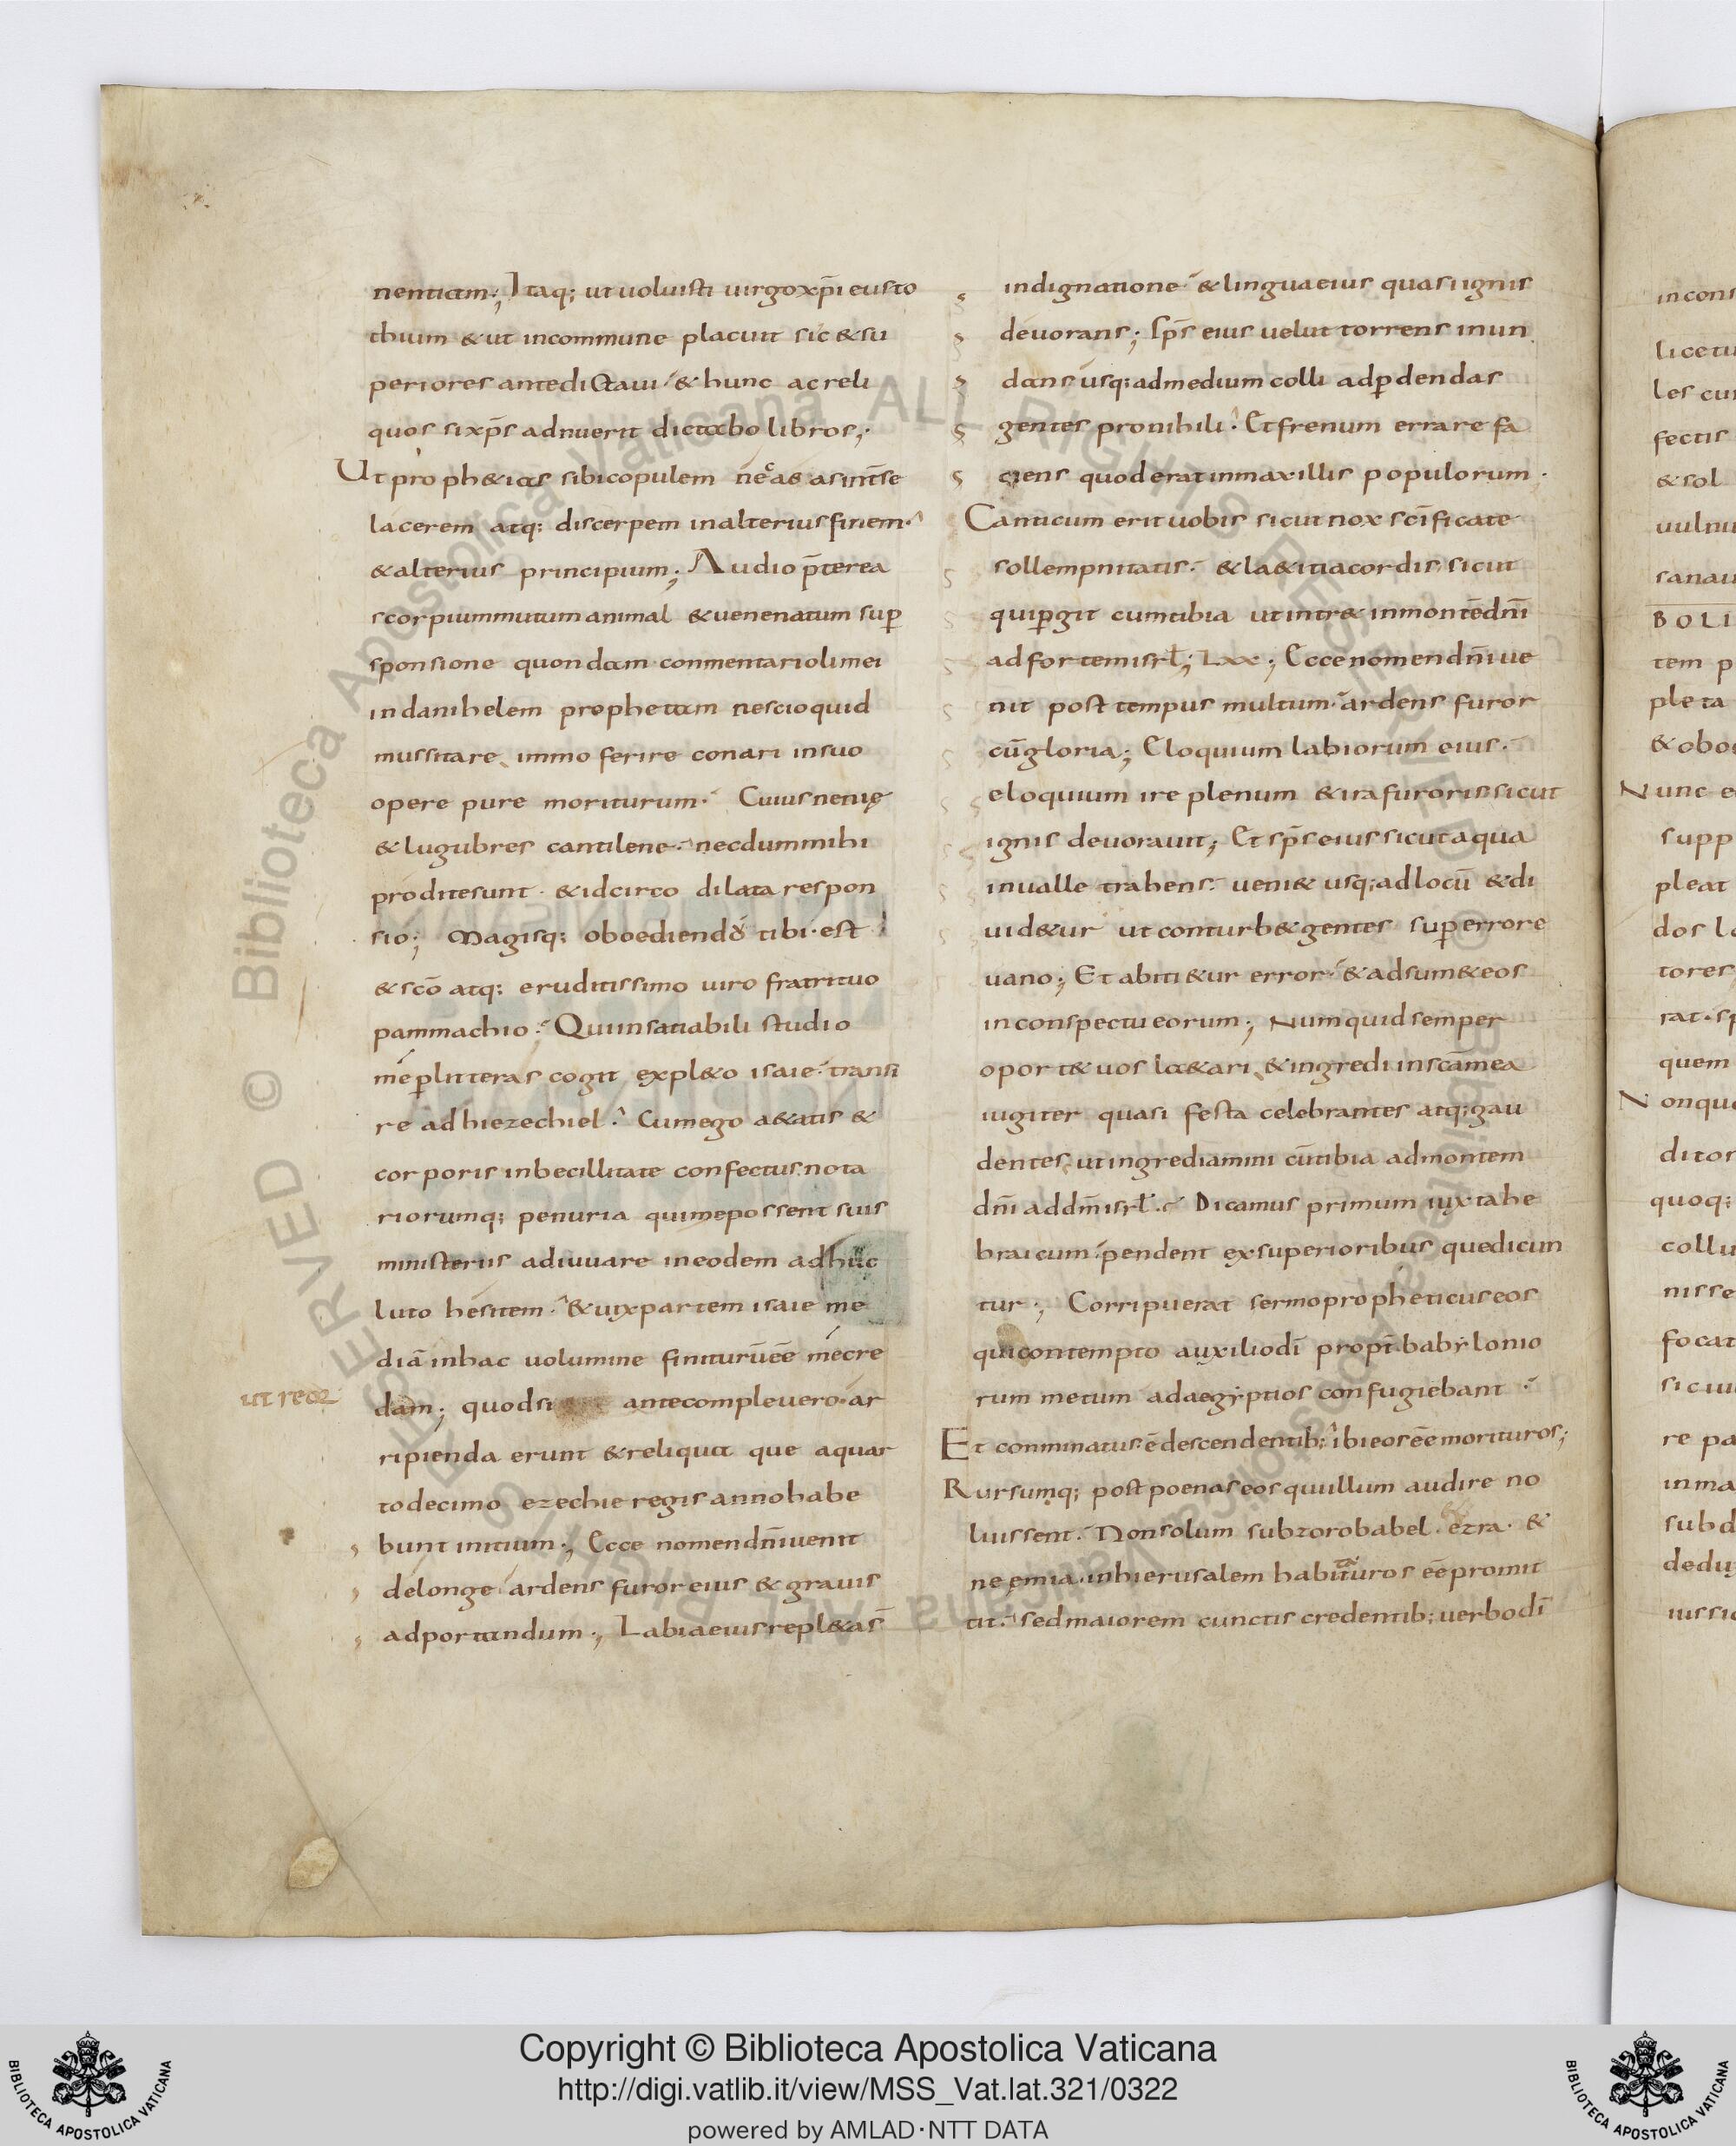 nentiam; Itaq; ut voluisti uirgo xp̄i eusto
chium & ut incommune placuit sic & su
periores ante dictaui & hunc ac reli
quos si xp̄s adnuerit dictabo libros;
Ut proph&ias sibi copulem nec ab as intse
lacerem atq; discerpem in alterius finem.
& alterius principium; Audio p̄terea
scorpium mutum animal & uenenatum sup
sponsione quondam conmentarioli mei
in danihelem prophetam nescio quid
mussitare immo ferire conari in suo
opere pure moriturum. Cuius nenię
& lugubres cantilene. necdum mihi
prodite sunt. & idcirco dilata respon
sio; Magisq; oboediendū tibi est
& scō atq; eruditissimo uiro fratri tuo
pammachio. Qui insatiabili studio
me p litteras cogit expl&o isaie. transi
re ad hiezechiel. Cum ego a&atis &
corporis inbecillitate confectus. nota
riorumq; penuria qui me possent suis
ministeriis adiuuare in eodem adhuc
luto hesitem. & uix partem isaie me
diā in hac uolumine finiturū eē me cre
dam; quod si ante complevero. ar
ripienda erunt & reliqua que a quar
to decimo ezechie regis anno habe
bunt initium; Ecce nomen dn̄i uenit
de longe ardens furor eius & grauis
ad portandum; Labia eius repl&a s̄
indignatione & lingua eius quasi ignis
devorans; sp̄s eius uelut torrens inun
dans usq; ad medium colli ad pdendas
gentes pro nihili. Et frenum errare fa
ciens quod erat in maxillis populorum.
Canticum erit uobis sicut nox sc̄ificate
sollempnitatis. & la&itia cordis sicut
qui pgit cum tibia ut intr& in montē dn̄i
ad fortem isrl; Lxx; Ecce nomen dn̄i ue
nit post tempus multum. ardens furor
cū gloria; Eloquium labiorum eius.
eloquium ire plenum & ira furoris sicut
ignis deuorauit; Et sp̄s eius sicut aqua
in ualle trahens. ueni& usq; ad locū & di
uid&ur ut conturb& gentes sup errore
uano; Et abiti&ur error. & adsum& eos
in conspectu eorum; Numquid semper
oport& uos la&ari & ingredi in scā mea
iugiter quasi festa celebrantes atq; gau
dentes ut ingrediamini cū tibia ad montem
dn̄i ad dm̄ isrl. Dicamus primum iuxta he
braicum. pendent ex superioribus que dicun
tur; Corripuerat sermo propheticus eos
qui contempto auxilio dī propt babylonio
rum metum ad aegyptios confugiebant.
Et conminatus ē descendentib; ibi eos eē morituros;
Rursumq; post poenas eos qui illum audire no
luissent. Non solum sub zorobabel. ezra. &
neemia. in hierusalem habitaturos eē promit
tit. sed maiorem cunctis credentib; uerbo dī
ut reor
incons
licetu
les cu
fectis
& sol
uulnu
sanau
BOLI
tem p
pleta
& obo
Nunc e
supp
pleat
dos l
tores
rat. sp
quem
Nonqu
ditor
quoq;
collu
nisse
focat
siciu
re pa
inma
subd
dedu
iussi
Copyright © Biblioteca Apostolica Vaticana
http://digi.vatlib.it/view/MSS_Vat.lat.321/0322
powered by AMLAD·NTT DATA
BIBLIOTECA APOSTOLICA VATICANA
BIBLIOTECA APOSTOLICA VATICANA